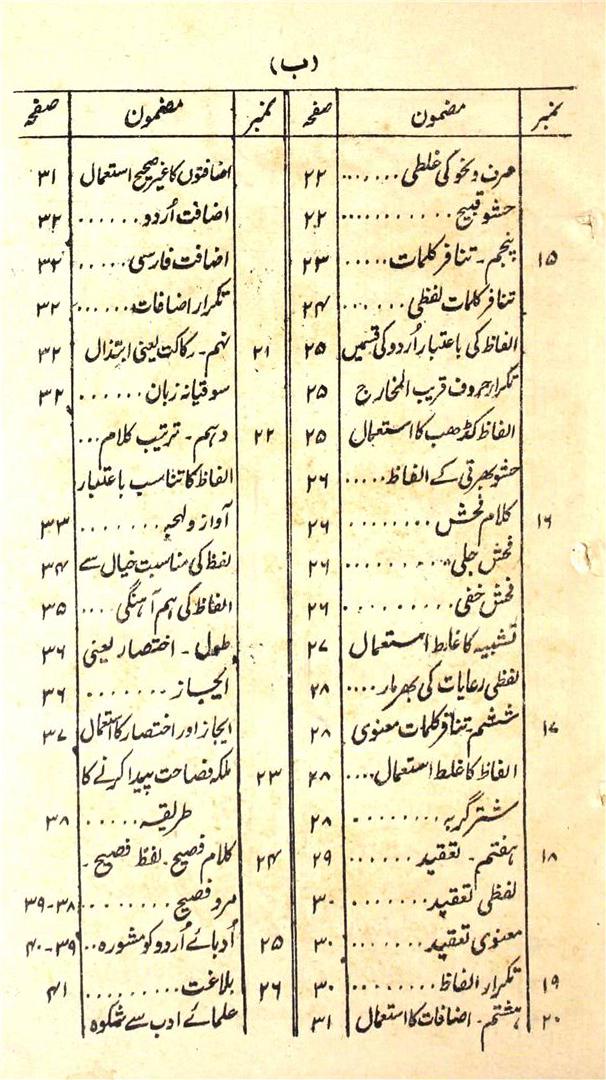 (ب)
نمبر مضمون صفحہ
صرف و نحو کی غلطی ....... ۲۲
حشو قبیح ............ ۲۲
۱۵ پنجم۔ تنافر کلمات ..... ۲۳
تنافر کلمات لفظی ....... ۲۴
الفاظ کی باعتبار اُردو کی قسمیں ۲۵
تکرار حروف قریب المخارج ۲۵
الفاظ کڈھب کا استعمال ۲۵
حشو بھرتی کے الفاظ ..... ۲۶
۱۶ کلام فحش ......... ۲۶
فحش جلی .......... ۲۶
فحش خفی .......... ۲۶
تشبیہ کا غلط استعمال ۲۷
لفظی رعایات کی بھرمار .... ۲۸
۱۷ ششم۔ تنافر کلمات معنوی ۲۸
الفاظ کا غلط استعمال .... ۲۸
شتر گربہ ......... ۲۸
۱۸ ہفتم۔ تعقید ....... ۲۹
لفظی تعقید ........ ۳۰
معنوی تعقید ....... ۳۰
۱۹ تکرار الفاظ ......... ۳۰
۲۰ ہشتم۔ اضافات کا استعمال ۳۱
نمبر مضمون صفحہ
اضافتوں کا غیر صحیح استعمال ۳۱
اضافت اُردو ...... ۳۲
اضافت فارسی ..... ۳۲
تکرار اضافات ...... ۳۲
۲۱ نہم۔ رکاکت یعنی ابتذال ۳۲
سوقیانہ زبان ...... ۳۲
۲۲ دہم۔ ترتیب کلام ...
الفاظ کا تناسب باعتبار
آواز و لہجہ ........ ۳۳
لفظ کی مناسبت خیال سے ۳۴
الفاظ کی ہم آہنگی .... ۳۵
طول۔ اختصار یعنی ۳۶
ایجاز ........ ۳۶
ایجاز اور اختصار کا استعمال ۳۷
۲۳ ملکہ فصاحت پیدا کرنے کا
طریقہ ...... ۳۸
۲۴ کلام فصیح۔ لفظ فصیح۔
مرو فصیح ......... ۳۸-۳۹
۲۵ اُدبائے اُردو کو مشورہ .. ۳۹-۴۰
۲۶ بلاغت ......... ۴۱
علمائے ادب سے شکوہ